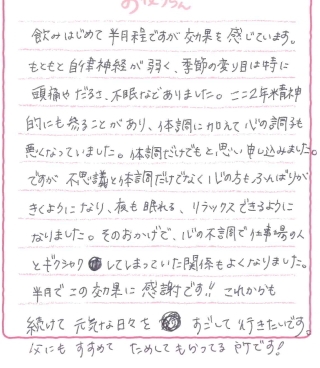 飲みはじめて半月程ですが効果を感じています。
もともと自律神経が弱く、季節の変り目は特に
頭痛やだるさ、不眠などありました。ここ2年精神
的にも参ることがあり、体調に加えて心の調子も
悪くなっていました。体調だけでもと思い申し込みました。
ですが不思議と体調だけでなく心の方もふんばりが
きくようになり、夜も眠れる、リラックスできるように
なりました。そのおかげで、心の不調で仕事場の人
とギクシャクしてしまっていた関係もよくなりました。
半月でこの効果に感謝です!! これからも
続けて元気な日々をすごして行きたいです。
父にもすすめてためしてもらってる所です!